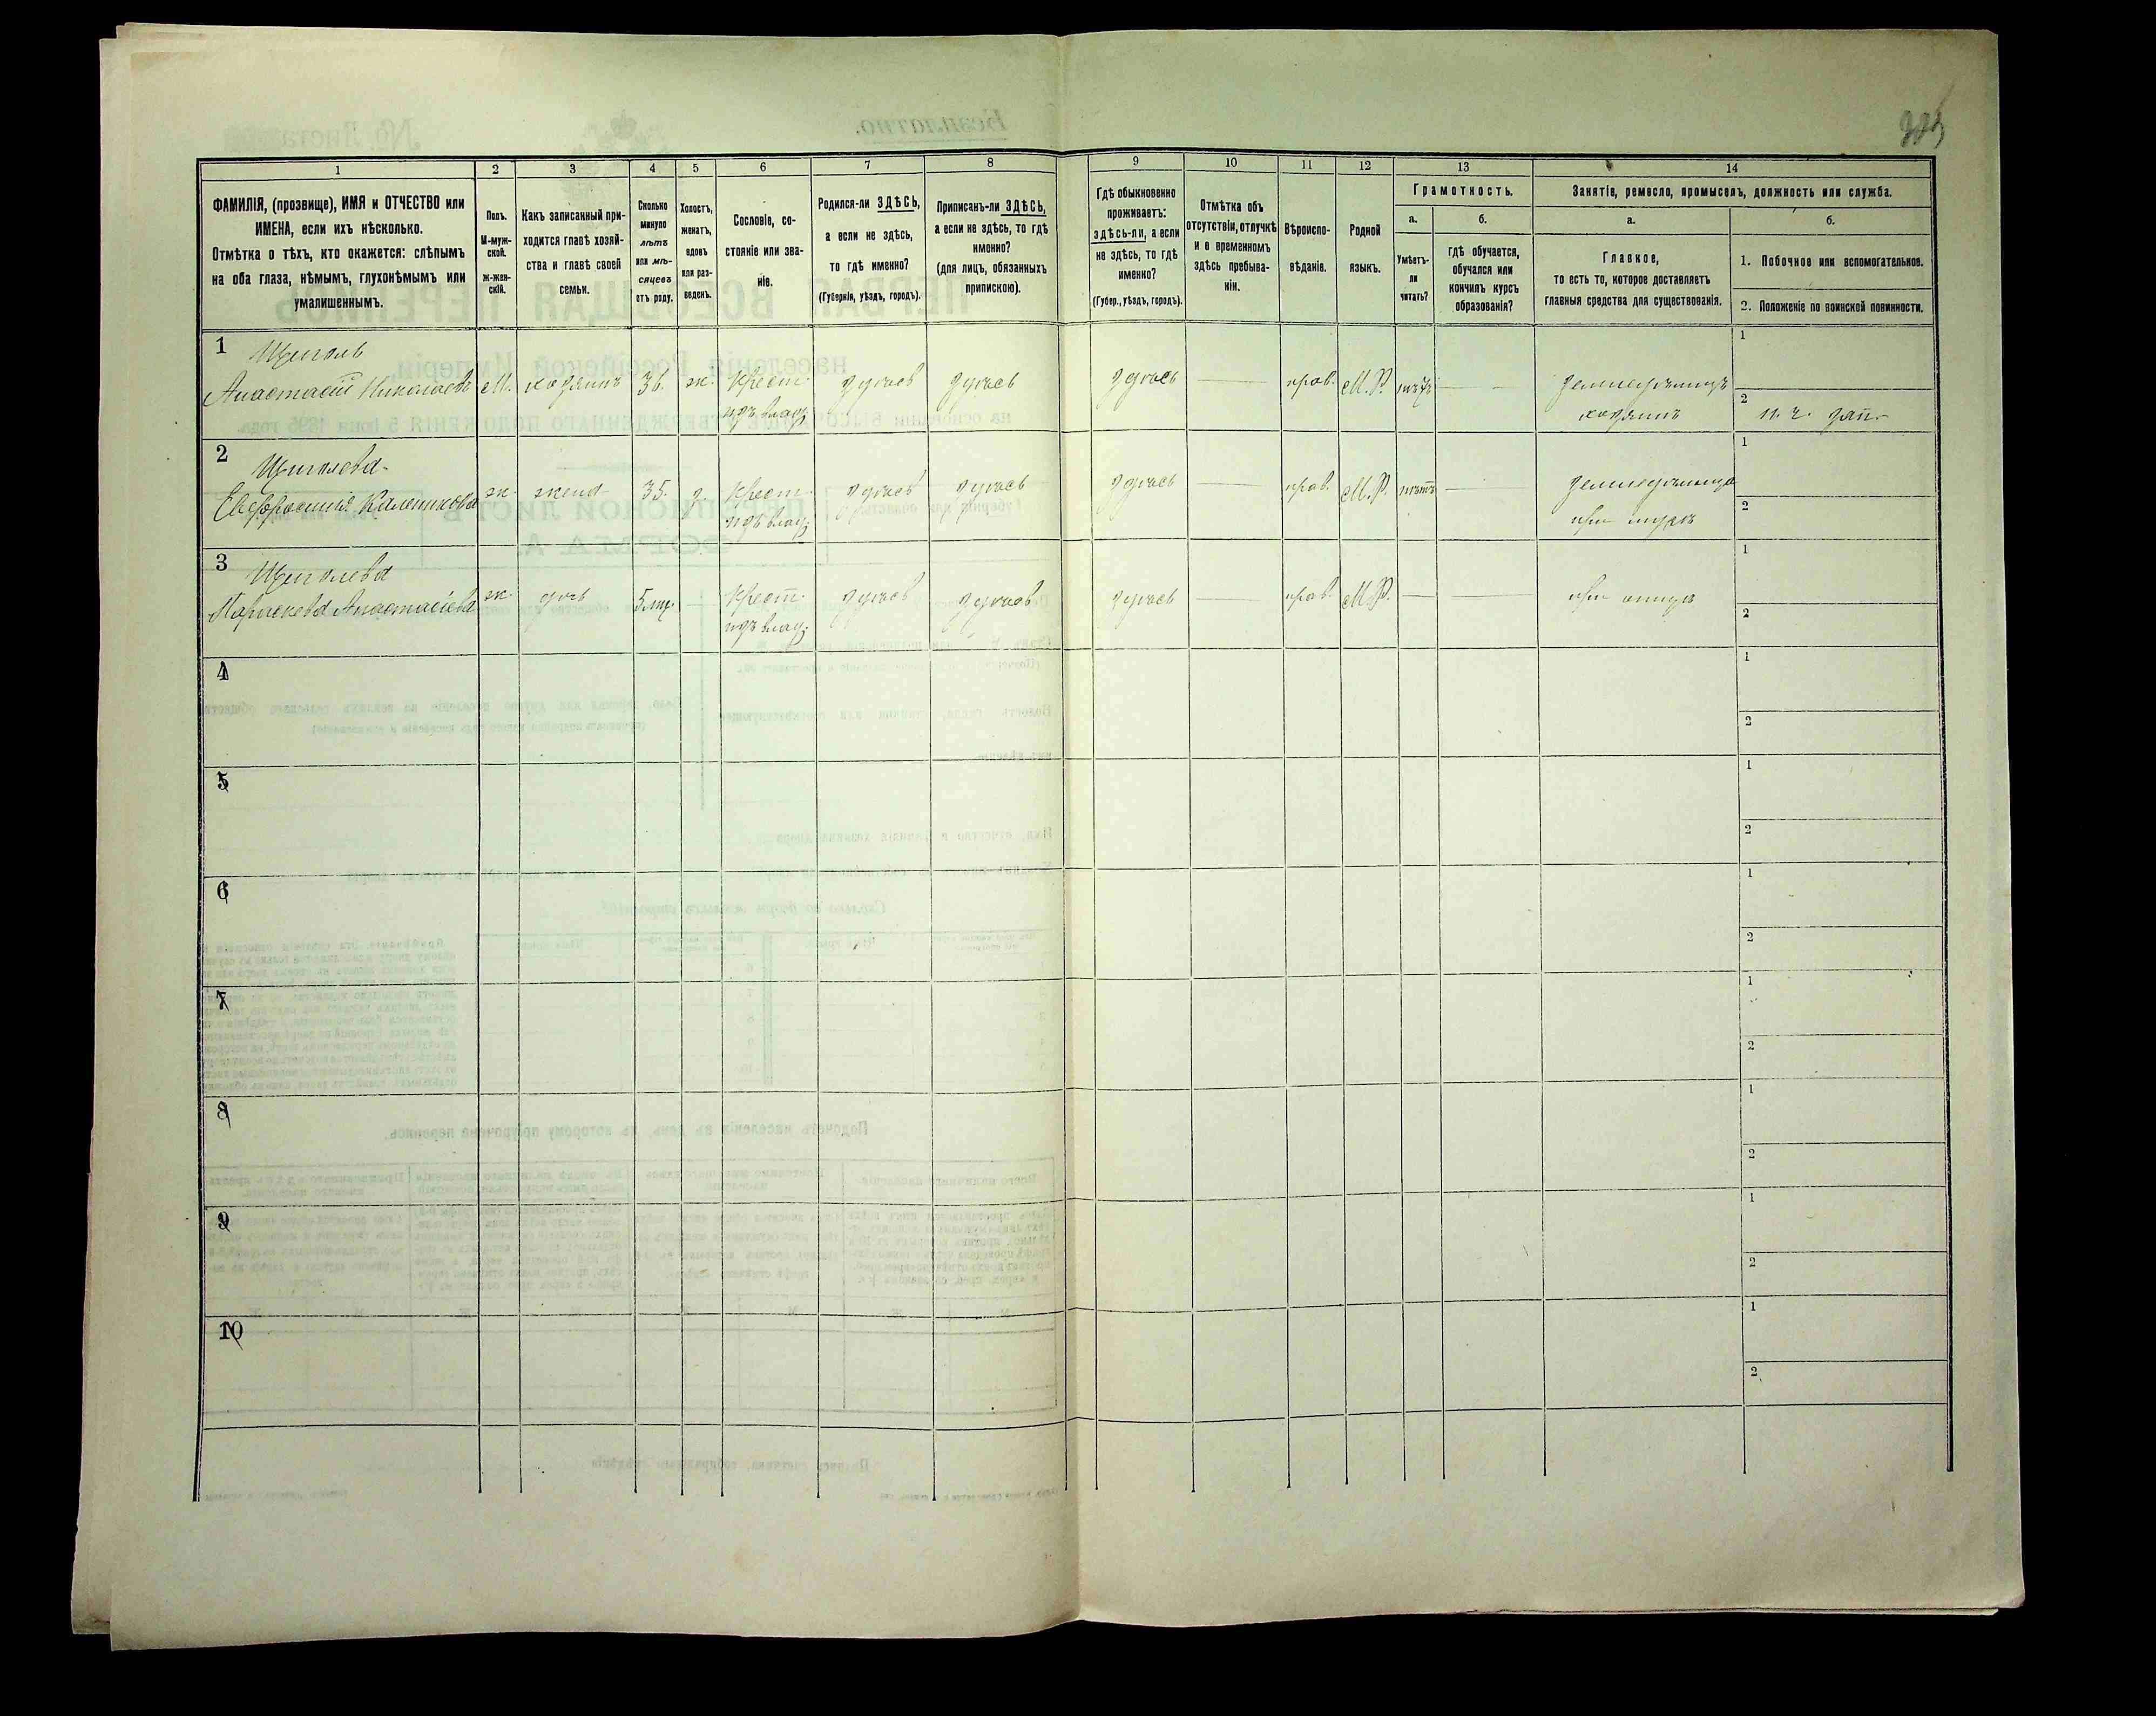 1
2
3
4
5
6
7
8
9
10
11
12
13
14
ФАМИЛІЯ, (прозвище), ИМЯ и ОТЧЕСТВО или
ИМЕНА, если ихъ нѣсколько.
Отмѣтка о тѣхъ, кто окажется: слѣпымъ
на оба глаза, нѣмымъ, глухонѣмымъ или
умалишеннымъ.
Полъ.
М-муж-
ской.
Ж-жен-
скій.
Какъ записанный при-
ходится главѣ хозяй-
ства и главѣ своей
семьи.
Сколько
минуло
лѣтъ
или мѣ-
сяцевъ
отъ роду.
Холостъ,
женатъ,
вдовъ
или раз-
веденъ.
Сословіе, со-
стояніе или зва-
ніе.
Родился-ли ЗДѢСЬ,
а если не здѣсь,
то гдѣ именно?
(Губернія, уѣздъ, городъ).
Приписанъ-ли ЗДѢСЬ,
а если не здѣсь, то гдѣ
именно?
(для лицъ, обязанныхъ
припискою).
Гдѣ обыкновенно
проживаетъ:
здѣсь-ли, а если
не здѣсь, то гдѣ
именно?
(Губер., уѣздъ, городъ).
Отмѣтка объ
отсутствіи, отлучкѣ
и о временномъ
здѣсь пребыва-
ніи.
Вѣроиспо-
вѣданіе.
Родной
языкъ.
Грамотность.
а.
Умѣетъ-
ли
читать?
б.
гдѣ обучается,
обучался или
кончилъ курсъ
образованія?
Занятіе, ремесло, промыселъ, должность или служба.
а.
Главное,
то есть то, которое доставляетъ
главныя средства для существованія.
б.
1. Побочное или вспомогательное.
2. Положеніе по воинской повинности.
1
Щиголь
Анастасій Николаевъ М. хозяинъ 36. ж. Крест. здѣсь здѣсь здѣсь прав. М.Р. нѣтъ земледѣлецъ
изъ влад. хозяинъ
1
2 п. г. зап.
2
Щиголева
Евфросинія Каленикова ж. жена 35. з. Крест. здѣсь здѣсь здѣсь прав. М.Р. нѣтъ земледѣлица
изъ влад. при мужѣ
1
2
3
Щиголева
Параскева Анастасіева ж. дочь 5 мѣс. Крест. здѣсь здѣсь здѣсь прав. М.Р. при отцѣ
изъ влад.
1
2
4
1
2
5
1
2
6
1
2
7
1
2
8
1
2
9
1
2
10
1
2